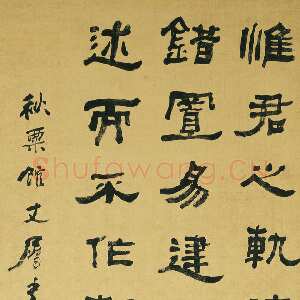 惟君之軌
錯置易建
述而不作
秋粟雅丈屬
Shufawang.CN